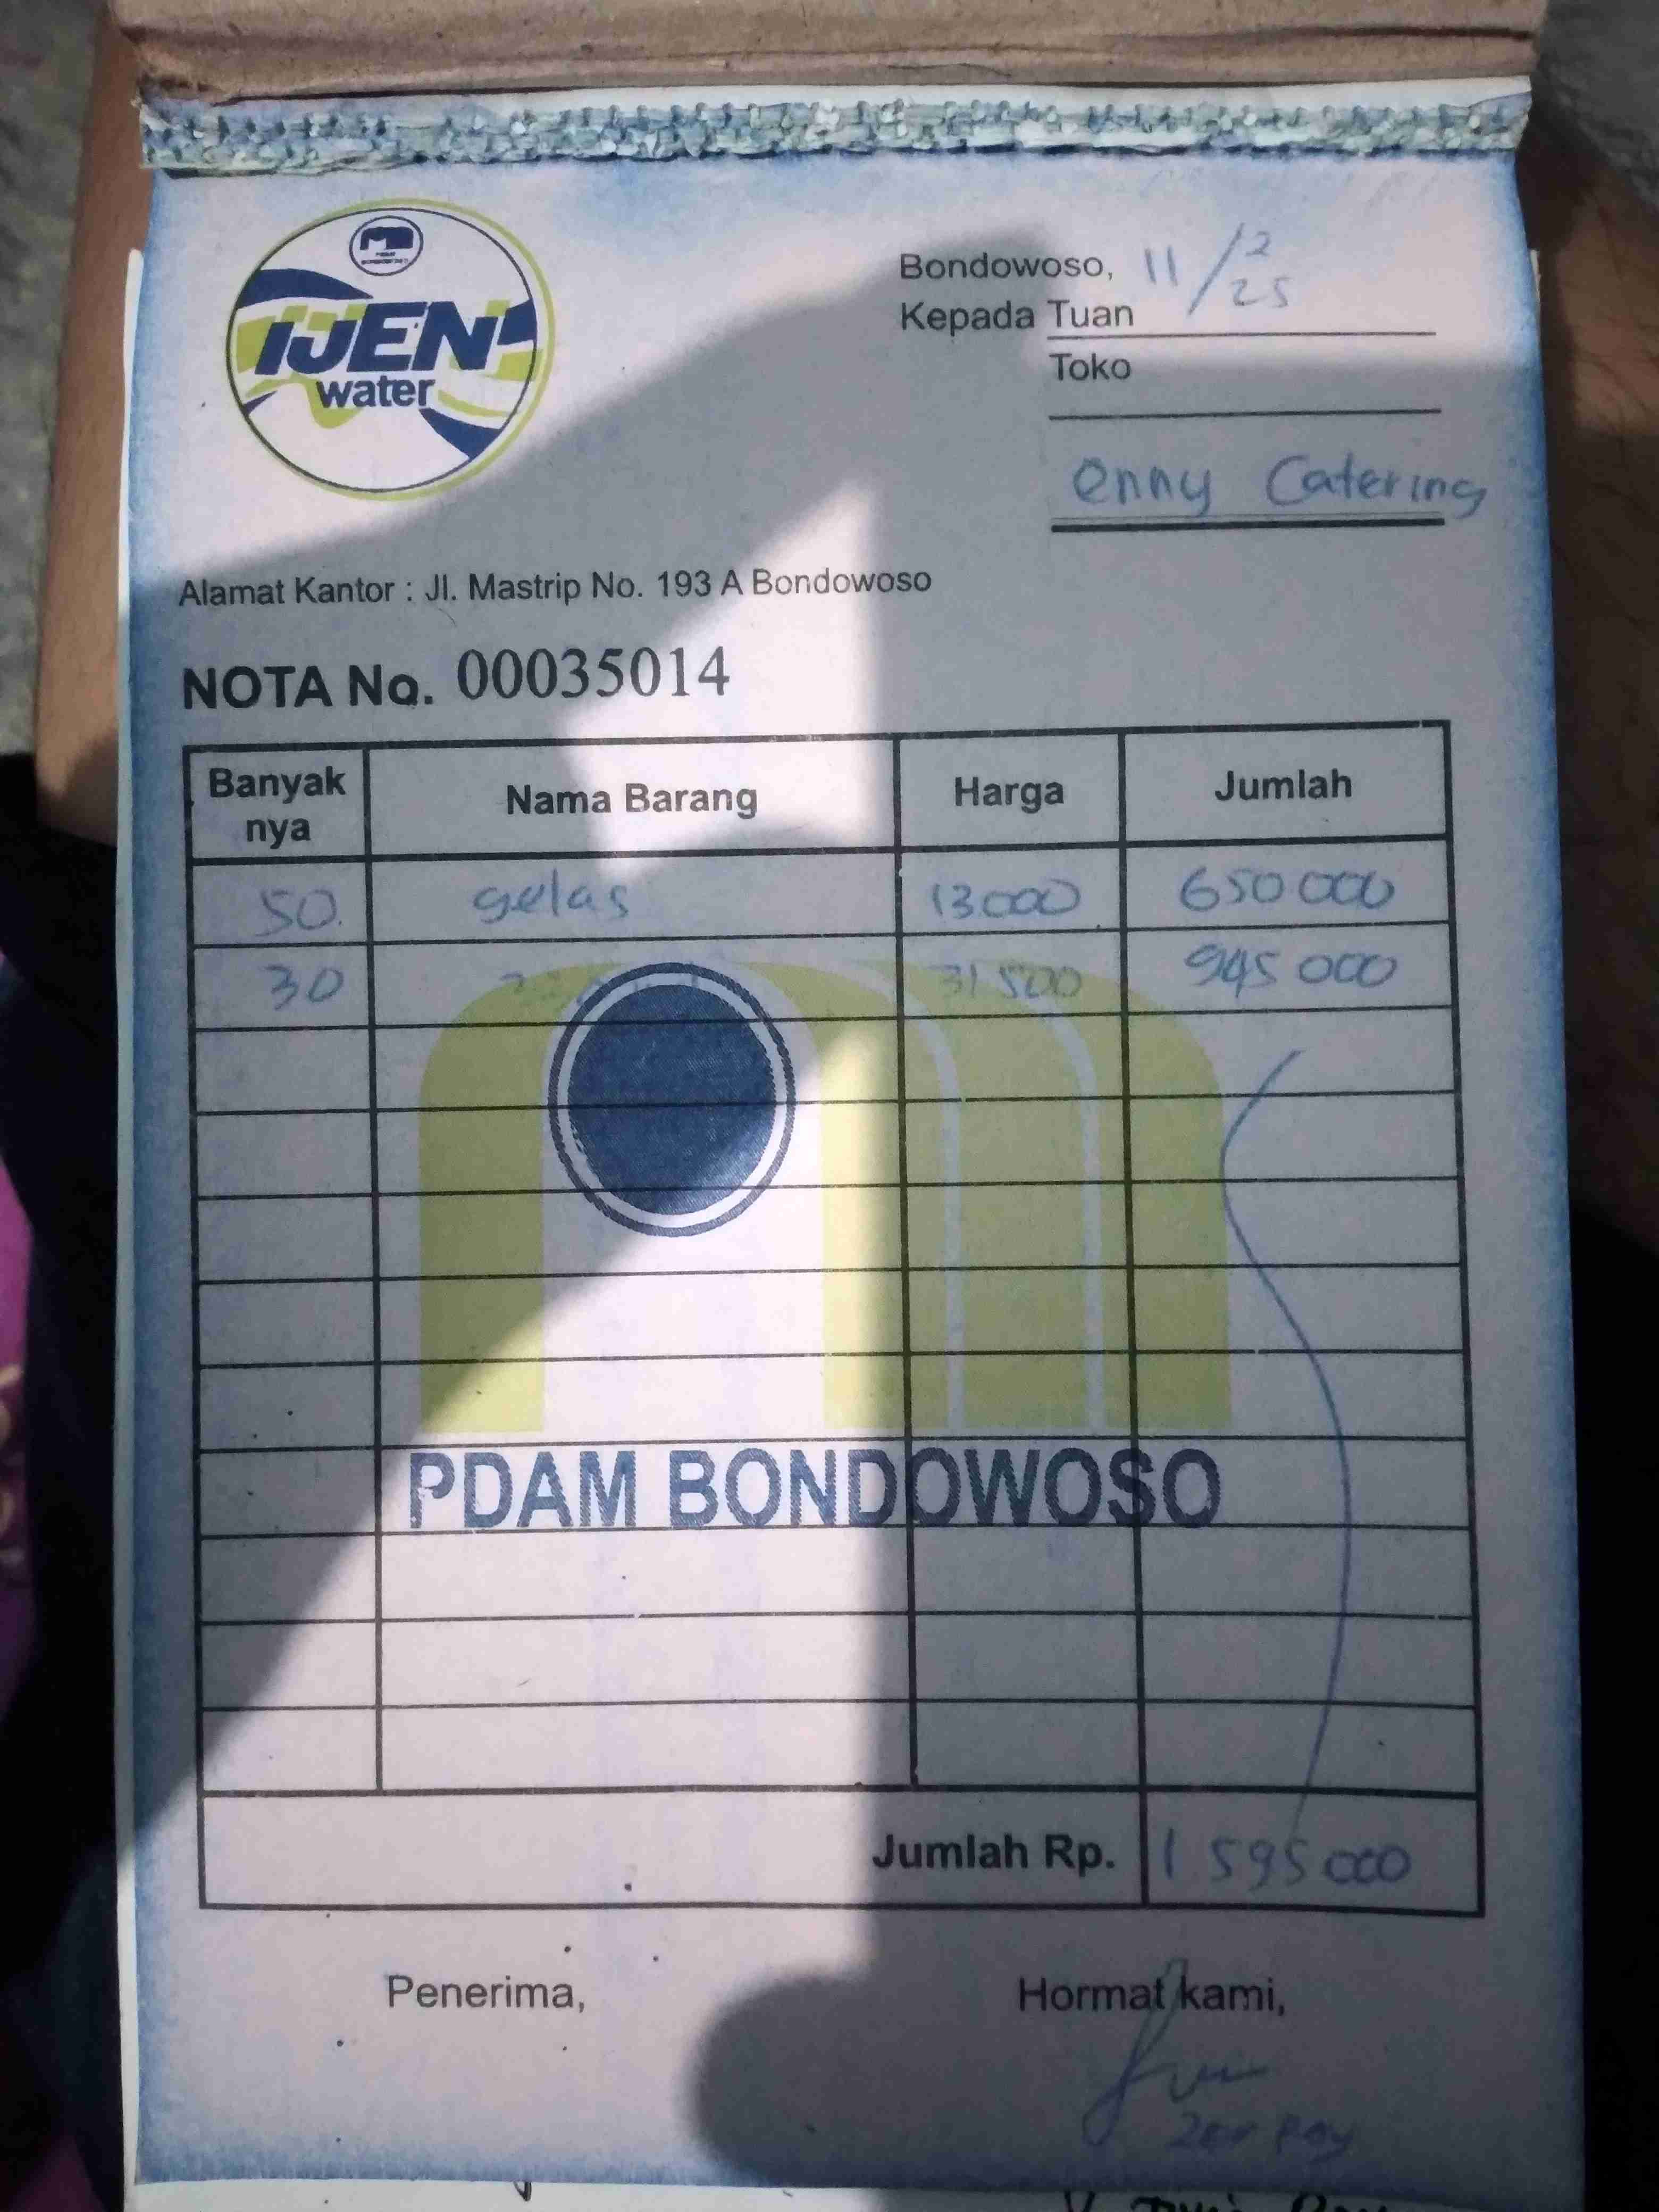 IJEN
water
Bondowoso, 11/2 25
Kepada Tuan
Toko
enny Catering
Alamat Kantor : Jl. Mastrip No. 193 A Bondowoso
NOTA No. 00035014
Banyak nya Nama Barang Harga Jumlah
50. gelas 13.000 650 000
30 31 500 945 000
PDAM BONDOWOSO
Jumlah Rp. 1 595 000
Penerima, Hormat kami,